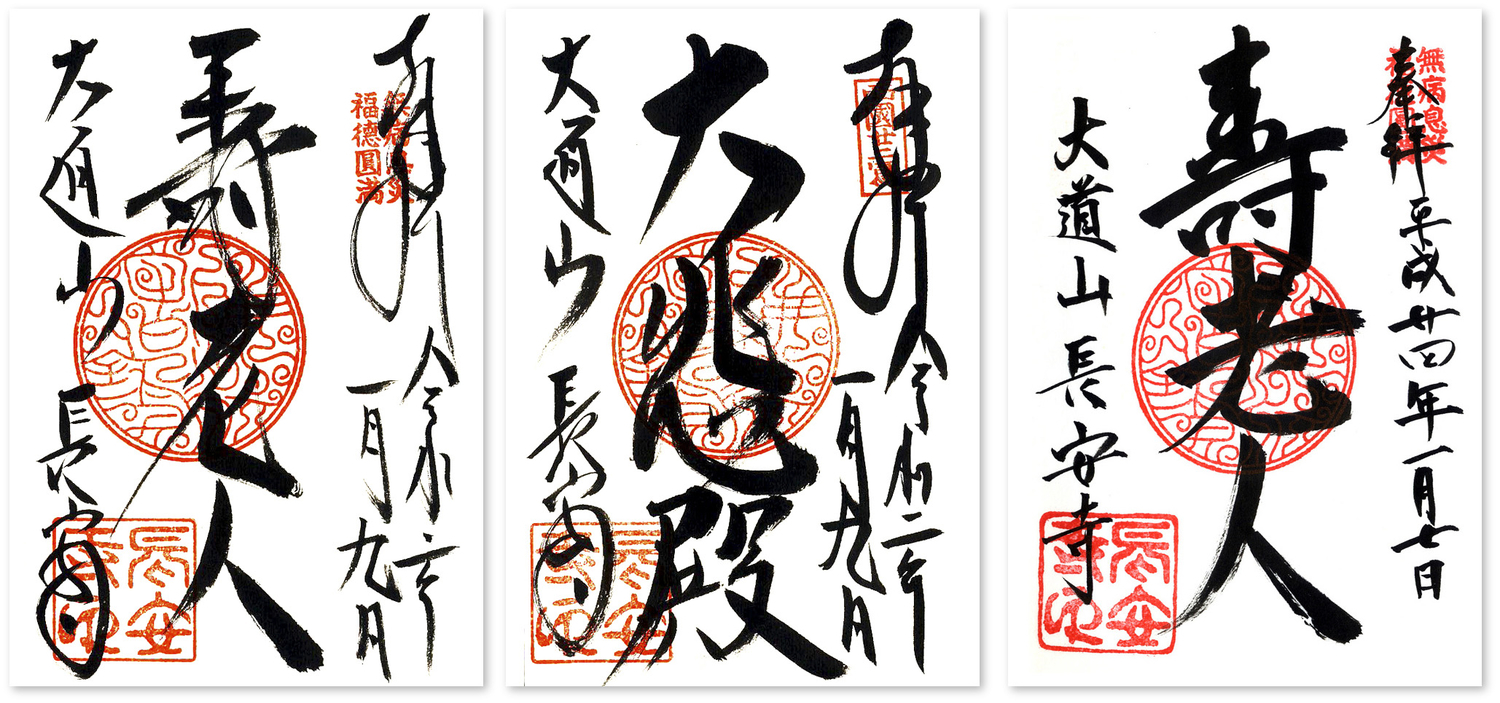 奉拝 令和二年
一月九日
無病息災
福徳圓満
寿老人
大道山 長安寺
長安
寺印
奉拝 令和二年
一月九日
大悲殿
大道山 長安寺
長安
寺印
奉拝 平成廿四年一月七日
無病息災
寿老人
大道山 長安寺
長安
寺印